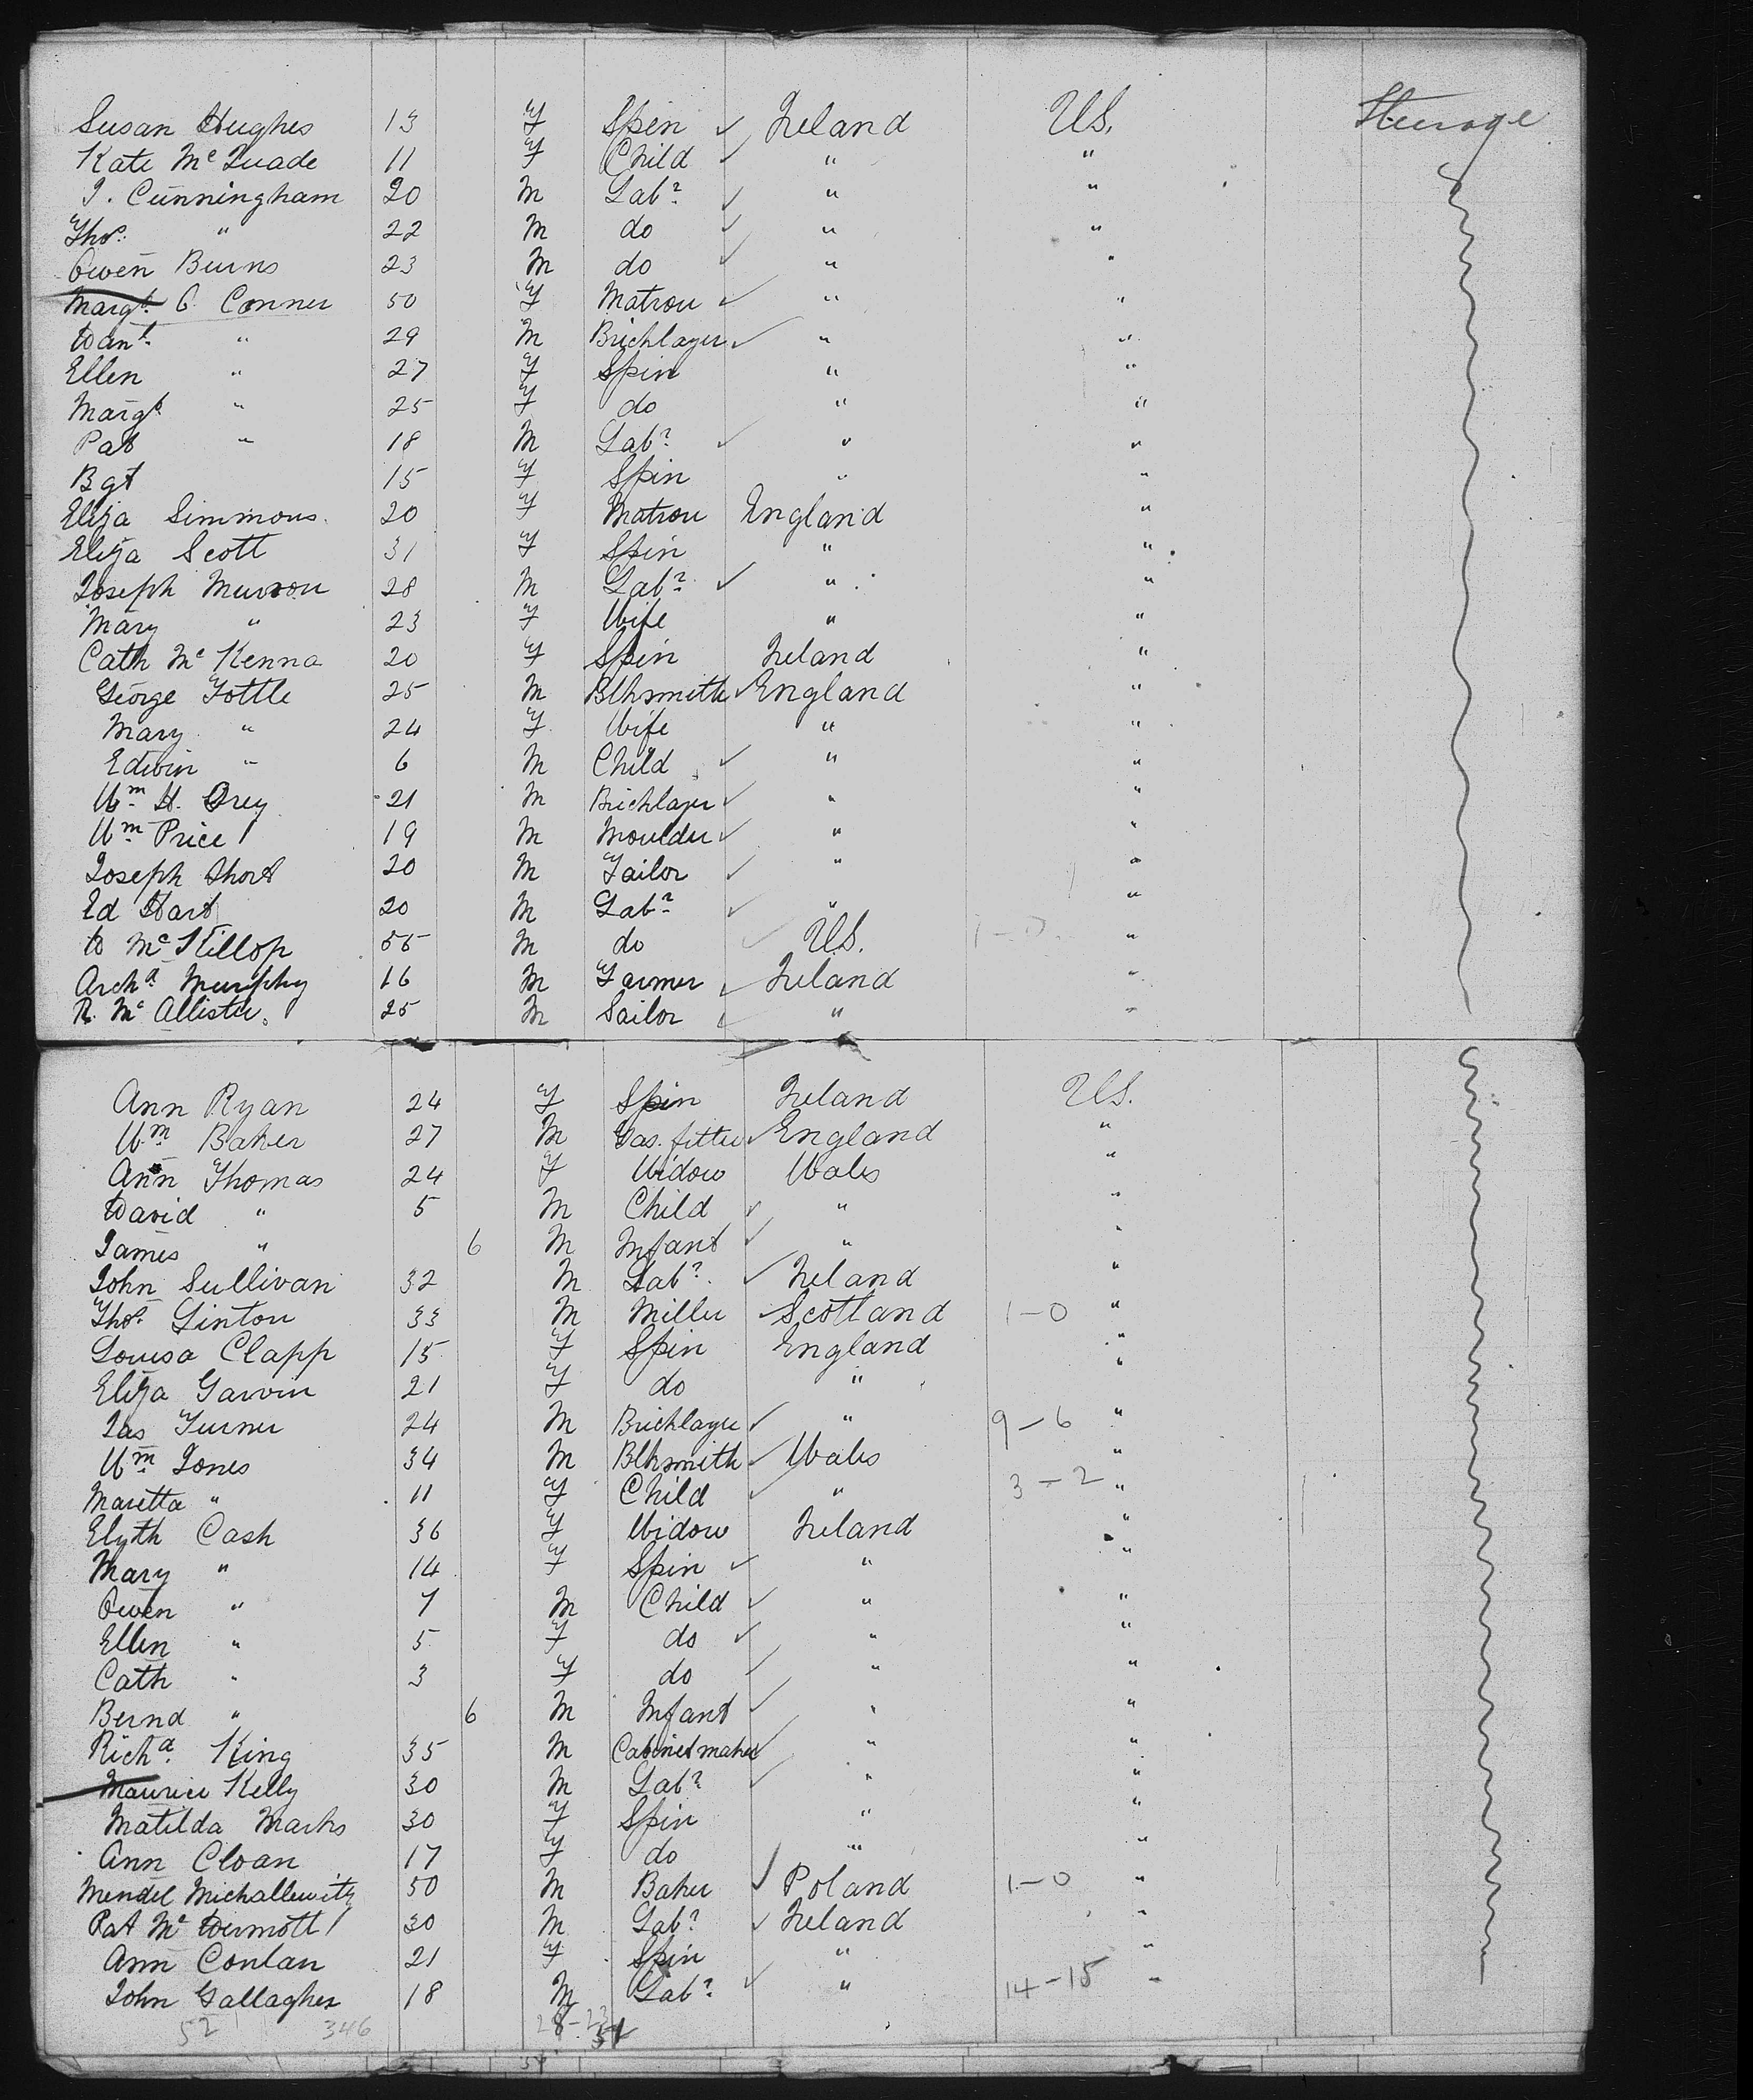 Susan Hughes 13 F Spin ✓ Ireland U.S. Steerage
Kate Mc Quade 11 F Child ✓ " "
J. Cunningham 20 M Labr ✓ " "
Thos. " 22 M do ✓ " "
Owen Burns 23 M do ✓ " "
Margt. O Conner 50 F Matron ✓ " "
Danl. " 29 M Bricklayer ✓ " "
Ellen " 27 F Spin " "
Margt " 25 F do " "
Pat " 18 M Labr ✓ " "
Bgt 15 F Spin " "
Eliza Simmons 20 F Matron England "
Eliza Scott 31 F Spin " "
Joseph 28 M Labr ✓ " "
Mary " 23 F Wife " "
Cath Mc Kenna 20 F Spin Ireland "
George Tottle 25 M Blksmith ✓ England "
Mary " 24 F Wife " "
Edwin " 6 M Child ✓ " "
Wm. H. Grey 21 M Bricklayer ✓ " "
Wm. Price 19 M Moulder ✓ " "
Joseph Short 20 M Tailor ✓ " "
Ed Hart 20 M Labr ✓ " "
D Mc Killop 55 M do ✓ U.S. 1-0 "
Archd. Murphy 16 M Farmer ✓ Ireland "
R. Mc Allister 25 M Sailor ✓ " "
Ann Ryan 24 F Spin Ireland U.S.
Wm. Baker 27 M Gas fitter ✓ England "
Ann Thomas 24 F Widow Wales "
David " 5 M Child ✓ " "
James " 6 M Infant ✓ " "
John Sullivan 32 M Labr. ✓ Ireland "
Thos. Linton 33 M Miller Scotland 1-0 "
Louisa Clapp 15 F Spin England "
Eliza Garvin 21 F do " "
Jas Turner 24 M Bricklayer ✓ " 9-6 "
Wm. Jones 34 M Blksmith ✓ Wales "
Maretta " 11 F Child ✓ " 3-2 "
Elyth Cash 36 F Widow Ireland "
Mary " 14 F Spin ✓ " "
Owen " 7 M Child ✓ " "
Ellen " 5 F do ✓ " "
Cath " 3 F do ✓ " "
Bernd " 6 M Infant ✓ " "
Richd. King 35 M Cabinet maker ✓ " "
Maurice Kelly 30 M Labr ✓ " "
Matilda Marks 30 F Spin " "
Ann Cloan 17 F do " "
Mendel Michallewitz 50 M Baker ✓ Poland 1-0 "
Pat Mc Dermott 30 M Labr ✓ Ireland "
Ann Conlan 21 F Spin " "
John Gallagher 18 M Labr ✓ " 14-15 "
52 346